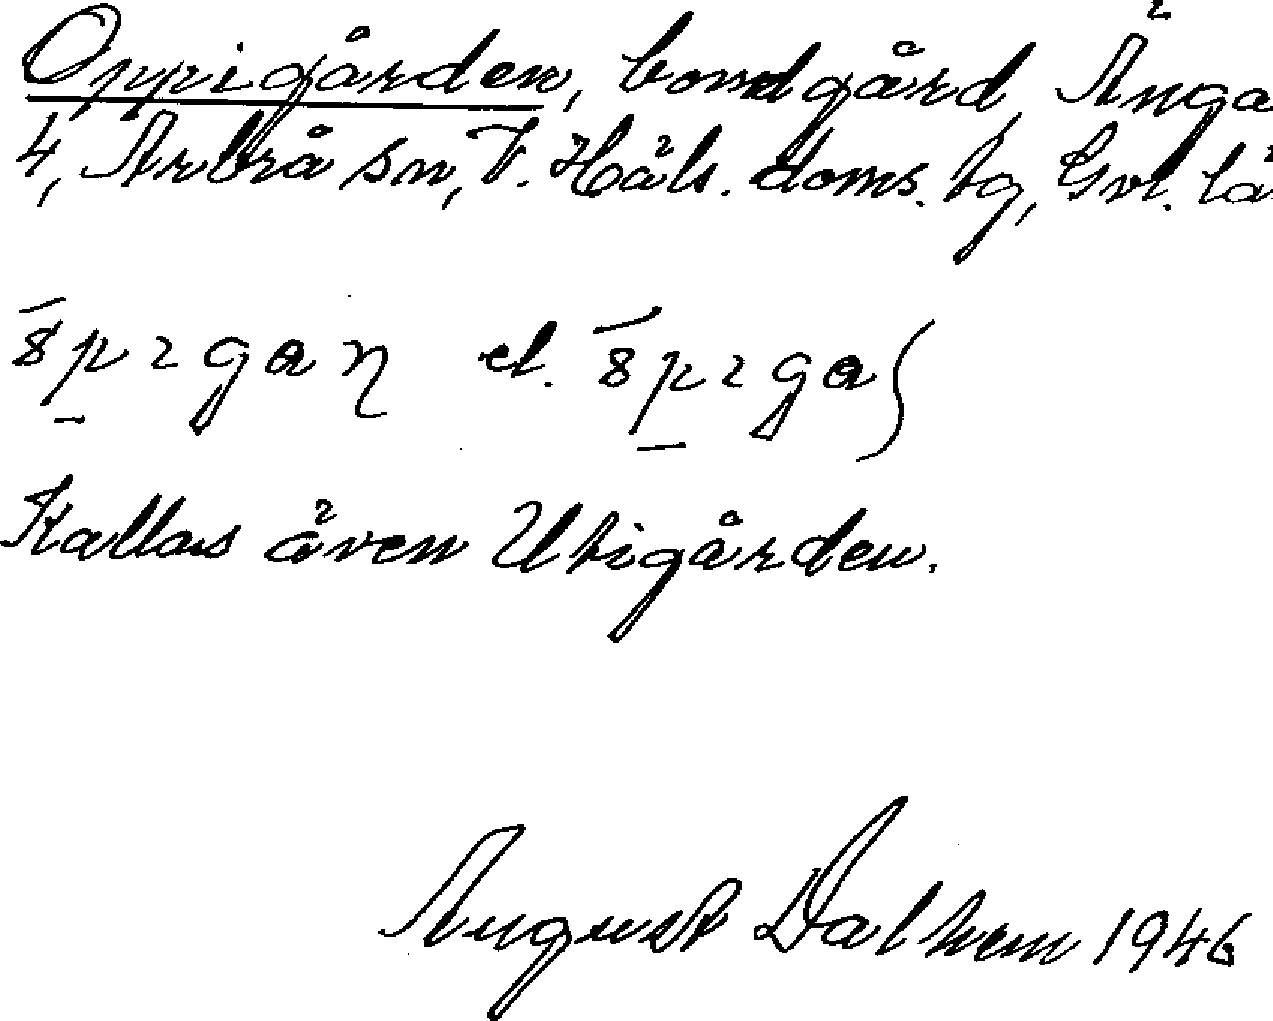 Oppigården, bondgård, Änga
4, Arbrå sn, V. Häls. doms. tg, Gvl. lä
el.
Kallas även Utigården.
August Dalhem 1946